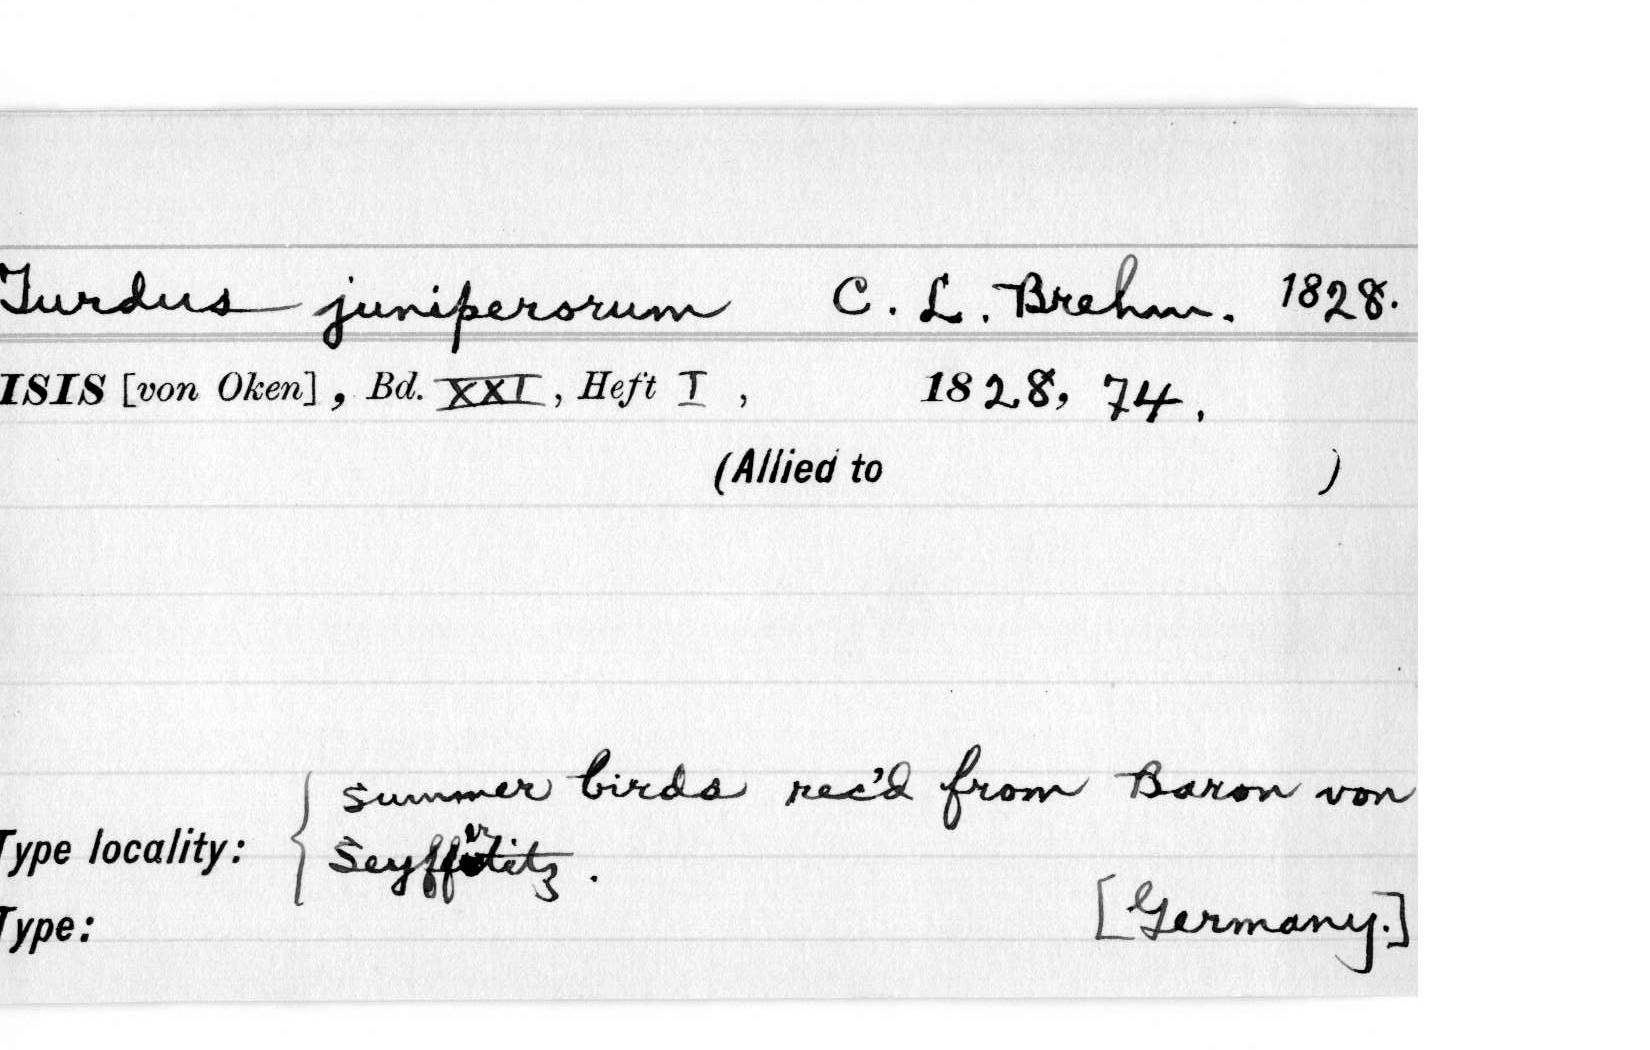 Turdus juniperorum C. L. Brehm. 1828.
ISIS [von Oken], Bd. XXI, Heft I, 1828, 74.
(Allied to )
summer birds rec'd from Baron von
Type locality:
Type: [Germany.]